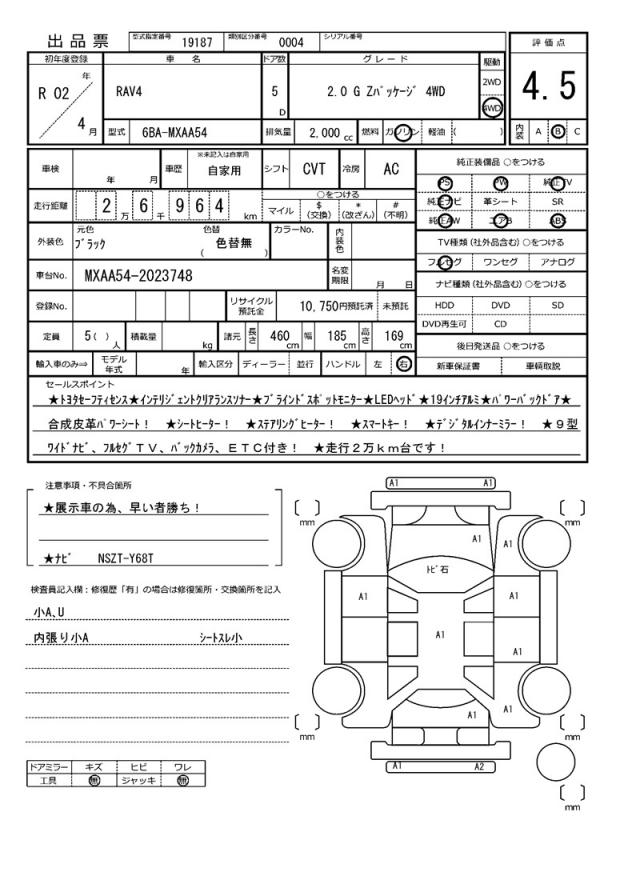 出品票 型式指定番号 19187 類別区分番号 0004 シリアル番号
評価点
4.5
内装 A B C
初年度登録 車名 ドア数 グレード 駆動
R 02 年 4 月 RAV4 5 D 2.0 G Zパッケージ 4WD 2WD 4WD
型式 6BA-MXAA54 排気量 2,000 cc 燃料 ガソリン 軽油 ( )
車検 年 月 車歴 ※未記入は自家用 自家用 シフト CVT 冷房 AC
走行距離 2 万 6 千 9 6 4 km ○をつける
マイル $ (交換) * (改ざん) # (不明)
外装色 元色 ブラック 色替 色替無 ( ) カラーNo. 内装色
車台No. MXAA54-2023748 名変期限 月 日
登録No. リサイクル預託金 10,750円預託済 未預託
定員 5( ) 人 積載量 kg 諸元 長さ 460 cm 幅 185 cm 高さ 169 cm
輸入車のみ⇒ モデル年式 年 輸入区分 ディーラー 並行 ハンドル 左 右
純正装備品 ○をつける
PS PW 純正TV
純正ナビ 革シート SR
純正AW エアB ABS
TV種類(社外品含む)○をつける
フルセグ ワンセグ アナログ
ナビ種類(社外品含む)○をつける
HDD DVD SD
DVD再生可 CD
後日発送品 ○をつける
新車保証書 車輌取説
セールスポイント
★トヨタセーフティセンス★インテリジェントクリアランスソナー★ブラインドスポットモニター★LEDヘッド★19インチアルミ★パワーバックドア★
合成皮革パワーシート! ★シートヒーター! ★ステアリングヒーター! ★スマートキー! ★デジタルインナーミラー! ★9型
ワイドナビ、フルセグTV、バックカメラ、ETC付き! ★走行2万km台です!
注意事項・不具合箇所
★展示車の為、早い者勝ち!
★ナビ NSZT-Y68T
検査員記入欄:修復歴「有」の場合は修復箇所・交換箇所を記入
小A、U
内張り小A シートスレ小
ドアミラー キズ ヒビ ワレ
工具 無 ジャッキ 無
A1 A1
mm mm
A1 A1
トビ石
A1 A1
A1
A1
A1
A1
mm mm
A1 A2
mm